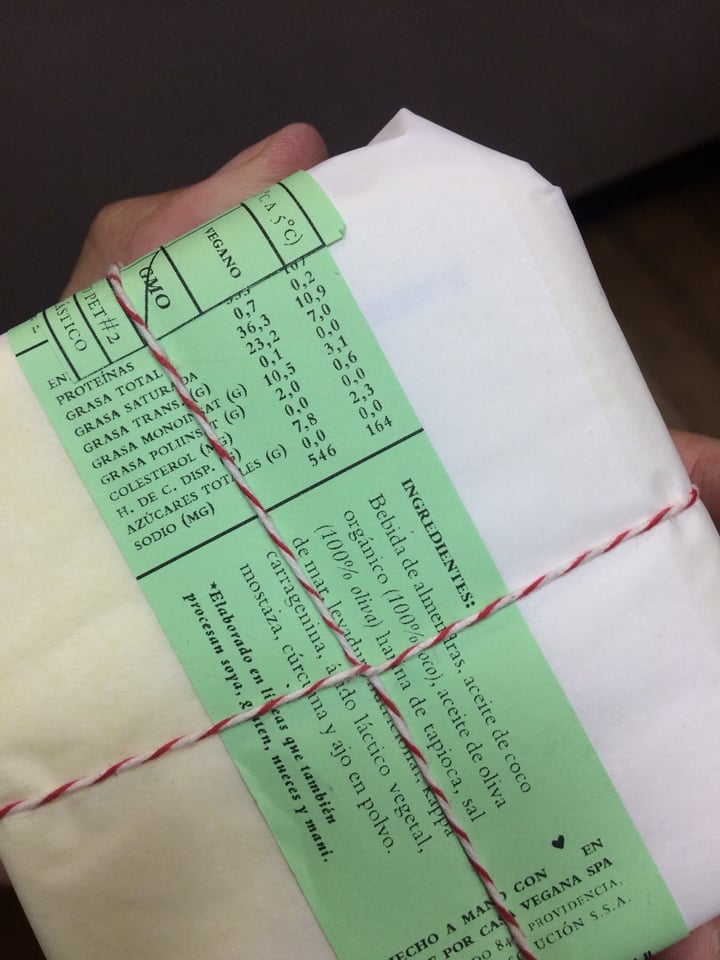 ÁSTICO
PET#2
GMO
VEGANO
°C A 5°C)
EN
PROTEÍNAS 0,7 0,2
GRASA TOTAL 36,3 10,9
GRASA SATURADA 23,2 7,0
GRASA TRANS. (G) 0,1 0,0
GRASA MONOINSAT (G) 10,5 3,1
GRASA POLIINSAT (G) 2,0 0,6
COLESTEROL (MG) 0,0 0,0
H. DE C. DISP. (G) 7,8 2,3
AZÚCARES TOTALES (G) 0,0 0,0
SODIO (MG) 546 164
INGREDIENTES:
Bebida de almendras, aceite de coco
orgánico (100% coco), aceite de oliva
(100% oliva) harina de tapioca, sal
de mar, levadura nutricional, kappa
carragenina, ácido láctico vegetal,
mostaza, cúrcuma y ajo en polvo.
*Elaborado en líneas que también
procesan soya, gluten, nueces y maní.
HECHO A MANO CON ♥ EN
E POR CASA VEGANA SPA
DO 84 PROVIDENCIA,
UCIÓN S.S.A.